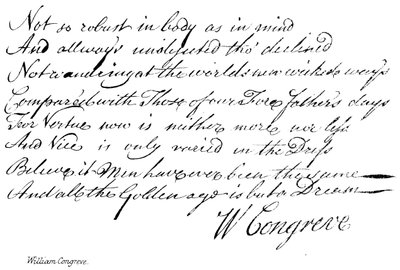 Not so robust in body as in mind
And allways undejected tho' declined
Not wondering at the worlds new wicked ways
Compar'd with Those of our Fore father's days
For Vertue now is neither more nor less
And Vice is only varied in the Dress
Beleive it Men have ever been the same
And all the Golden age is but a Dream
W Congreve
William Congreve.